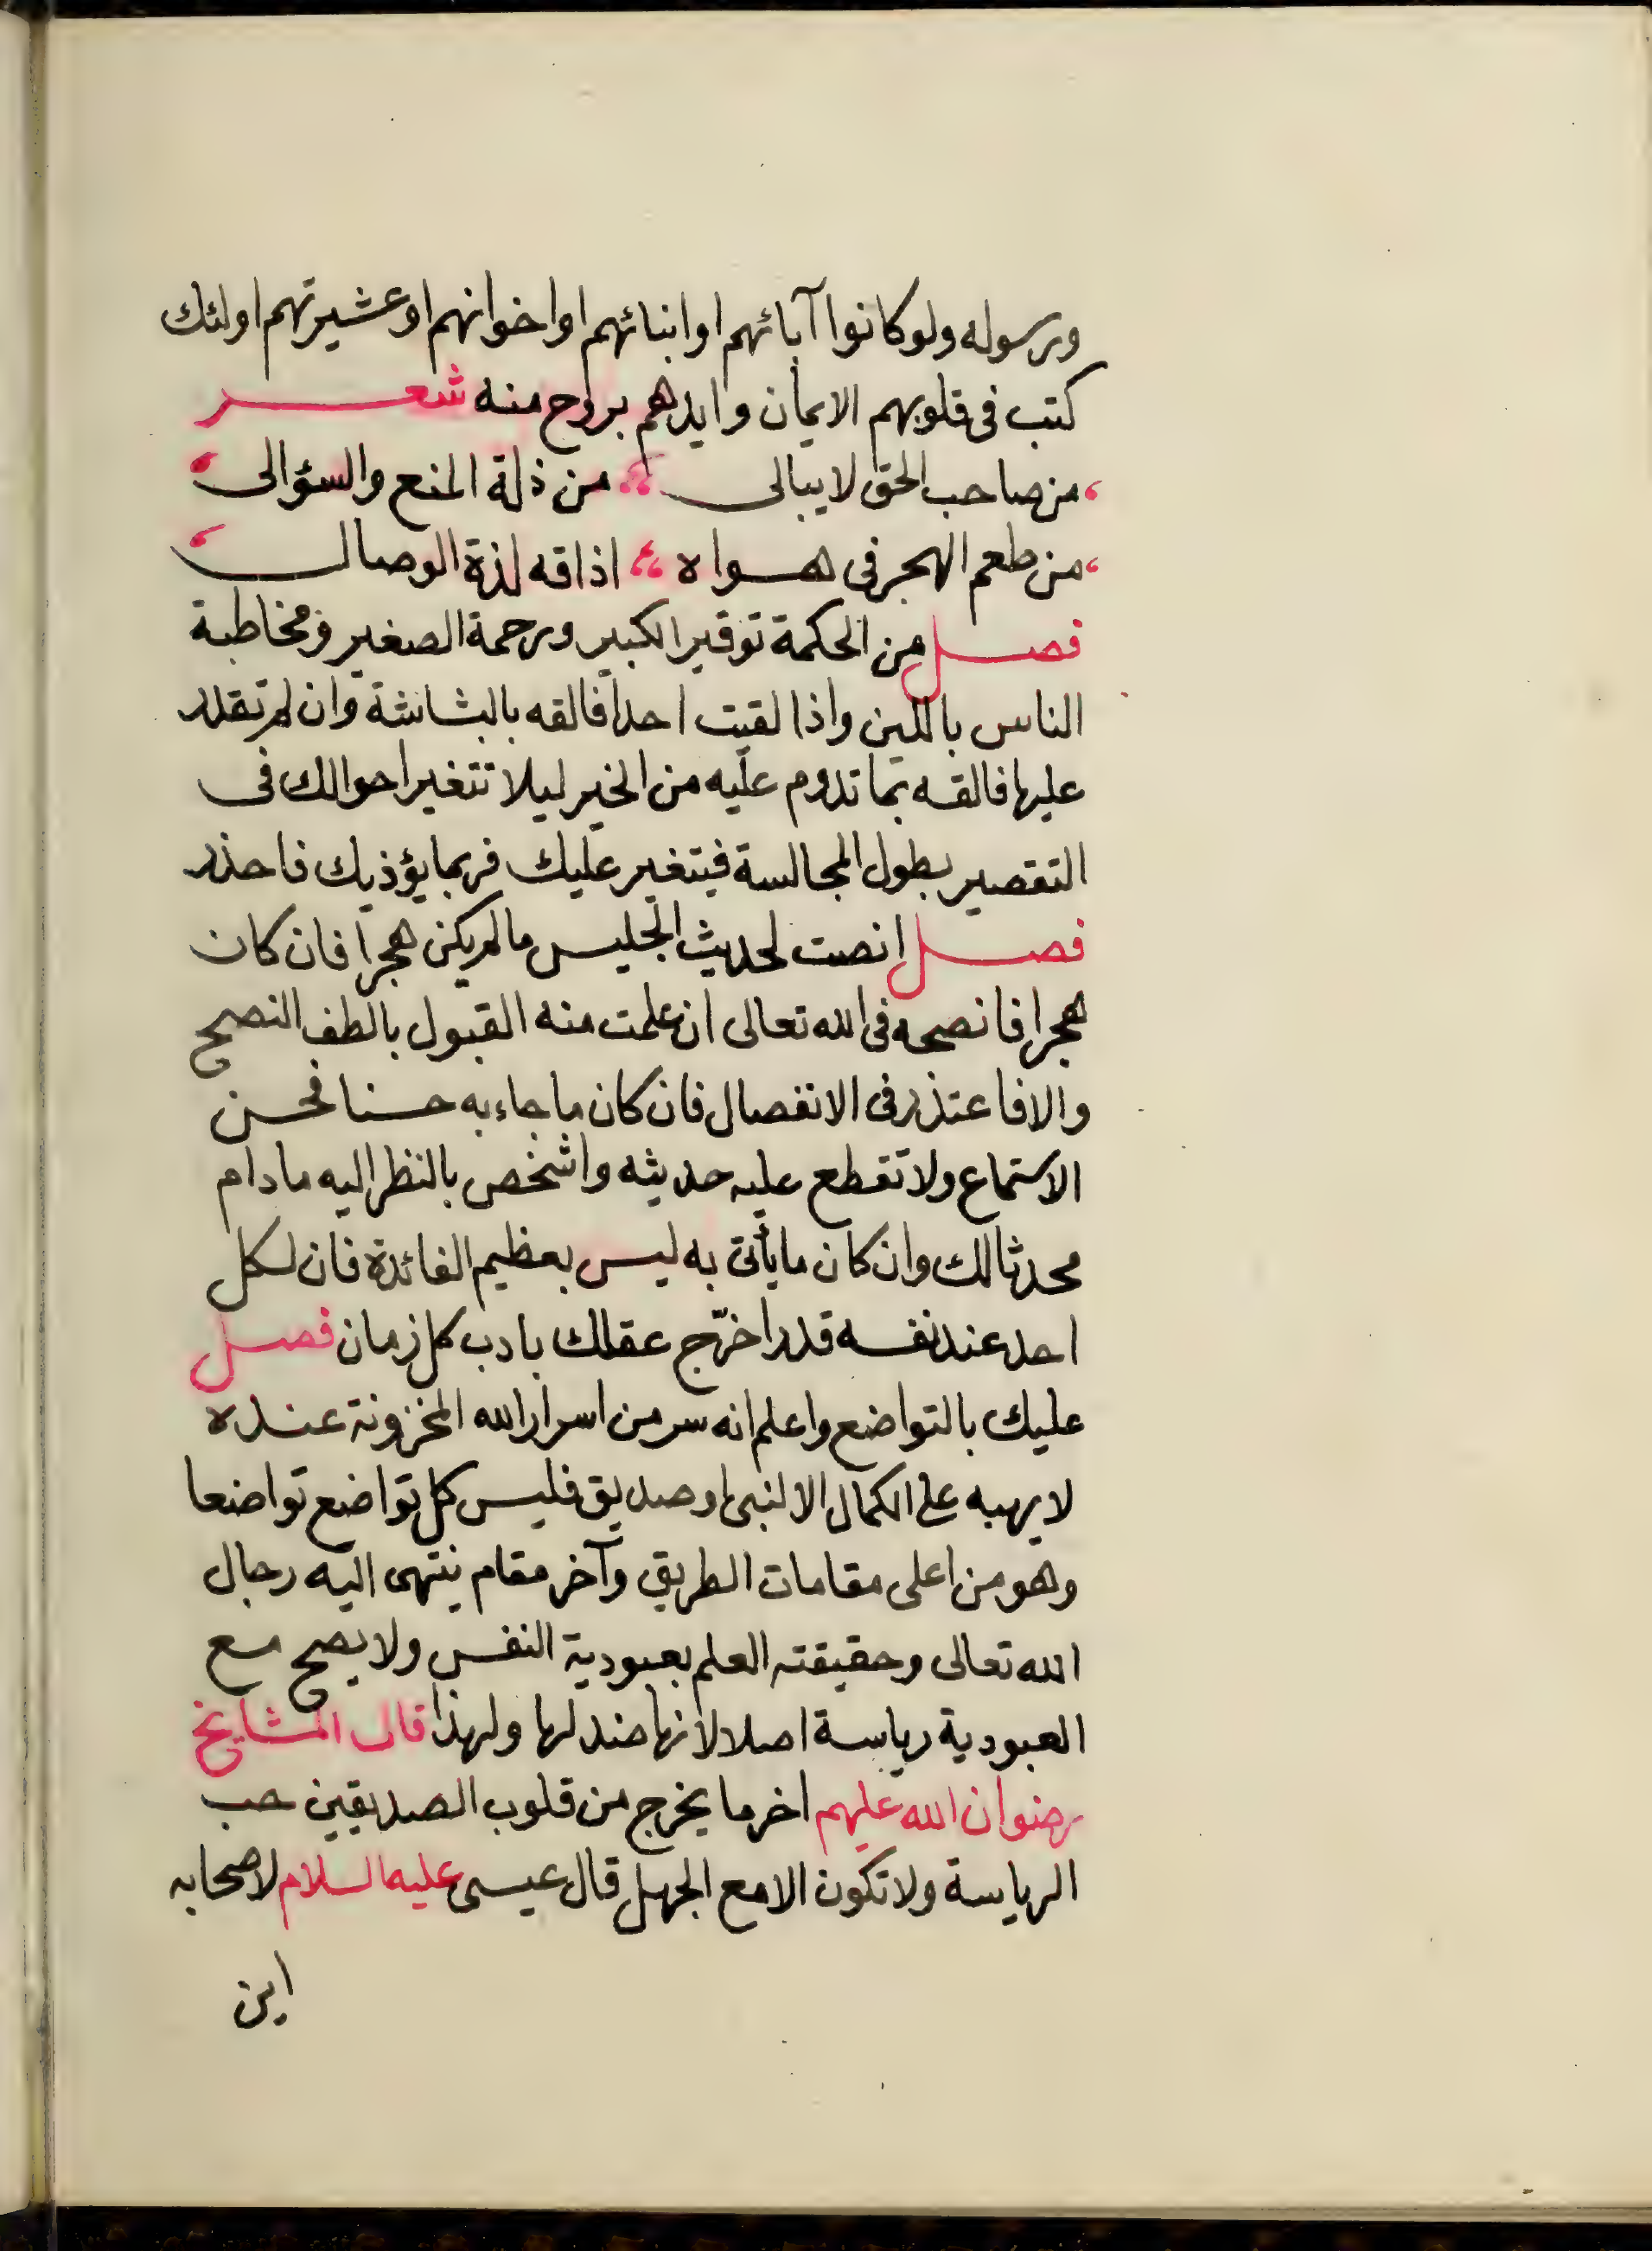 ورسوله ولوكانوا آبائهم اوابنائهم اواخوانهم اوعشيرتهم اولئك
كتب فى قلوبهم الايمان وايدهم بروح منه شعر
من صاحب الحق لايبالى من ذلة المنع والسؤالى
من طعم الهجر فى هواه اذاقه لذة الوصال
فصل من الحكمة توقير الكبير ورحمة الصغير ومخاطبة
الناس باللين واذا لقيت احدا فالقه بالبشاشة وان لم تقدر
عليها فالقه بما تدوم عليه من الخير ليلا تتغير احوالك فى
التقصير بطول المجالسة فيتغير عليك فربما يؤذيك فاحذر
فصل انصت لحديث الجليس مالم يكن هجرا فان كان
هجرا فانصحه فى الله تعالى ان علمت منه القبول بالطف النصح
والا فاعتذر فى الانفصال فان كان ما جاء به حسنا فحسن
الاستماع ولا تقطع عليه حديثه واشخص بالنظر اليه مادام
محدثا لك وان كان مايأتى به ليس بعظيم الفائدة فان لكل
احد عند نفسه قدرا خرّج عقلك بادب كل زمان فصل
عليك بالتواضع واعلم انه سر من اسرار الله المخزونة عنده
لا يهبه على الكمال الا لنبى او صديق فليس كل تواضع تواضعا
وهو من اعلى مقامات الطريق وآخر مقام ينتهى اليه رجال
الله تعالى وحقيقته العلم بعبودية النفس ولا يصح مع
العبودية رياسة اصلا لانها ضد لها ولهذا قال المشايخ
رضوان الله عليهم اخر ما يخرج من قلوب الصديقين حب
الرياسة ولا تكون الا مع الجهل قال عيسى عليه السلام لاصحابه
اين